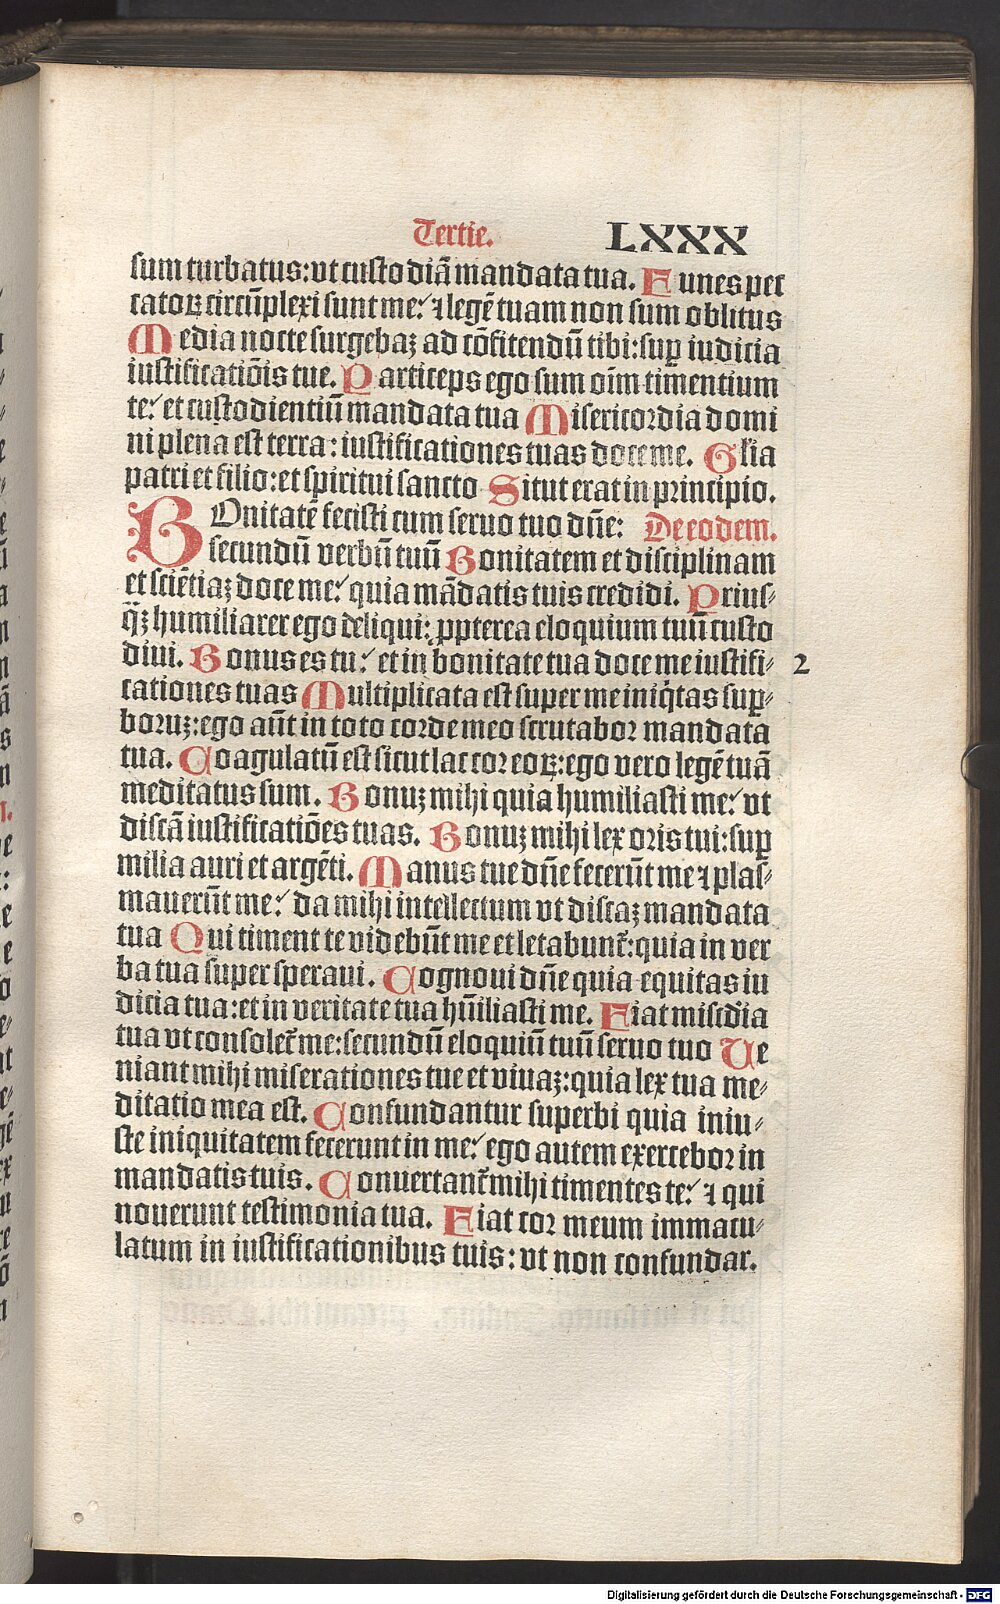 Tertie. LXXX
sum turbatus: vt custodiā mandata tua. Funes pec
catoꝝ circūplexi sunt me: ⁊ legē tuam non sum oblitus
Media nocte surgebaꝫ ad cōfitendū tibi: suꝑ iudicia
iustificatiōis tue. Particeps ego sum oīm timentium
te: et custodientiū mandata tua Misericordia domi
ni plena est terra: iustificationes tuas doce me. Glīa
patri et filio: et spiritui sancto Sicut erat in principio.
BOnitatē fecisti cum seruo tuo dn̄e: De eodem.
secundū verbū tuū Bonitatem et disciplinam
et sciētiaꝫ doce me: quia mādatis tuis credidi. Prius⸗
q̄ꝫ humiliarer ego deliqui: ꝓpterea eloquium tuū custo
diui. Bonus es tu: et in bonitate tua doce me iustifi⸗ 2
cationes tuas Multiplicata est super me iniq̇tas suꝑ⸗
boruꝫ: ego aūt in toto corde meo scrutabor mandata
tua. Coagulatū est sicut lac cor eoꝝ: ego vero legē tuā
meditatus sum. Bonuꝫ mihi quia humiliasti me: vt
discā iustificatiōes tuas. Bonuꝫ mihi lex oris tui: suꝑ
milia auri et argēti. Manus tue dn̄e fecerūt me ⁊ plas⸗
mauerūt me: da mihi intellectum vt discaꝫ mandata
tua Qui timent te videbūt me et letabunt᷑: quia in ver
ba tua super speraui. Cognoui dn̄e quia equitas iu
dicia tua: et in veritate tua hūiliasti me. Fiat misc̄dia
tua vt consolet᷑ me: secundū eloquiū tuū seruo tuo Ue
niant mihi miserationes tue et viuaꝫ: quia lex tua me⸗
ditatio mea est. Confundantur superbi quia iniu⸗
ste iniquitatem fecerunt in me: ego autem exercebor in
mandatis tuis. Conuertant᷑ mihi timentes te: ⁊ qui
nouerunt testimonia tua. Fiat cor meum immacu⸗
latum in iustificationibus tuis: vt non confundar.
Digitalisierung gefördert durch die Deutsche Forschungsgemeinschaft - DFG